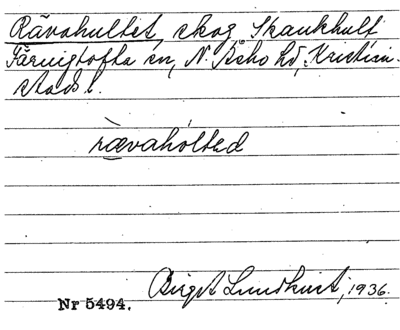 Rävahultet, skog, Skankhult
Färingtofta sn, N. Åsbo hd, Kristian-
stads l.
rævahòltəd
Birgit Lundkvist, 1936.
Nr 5494.